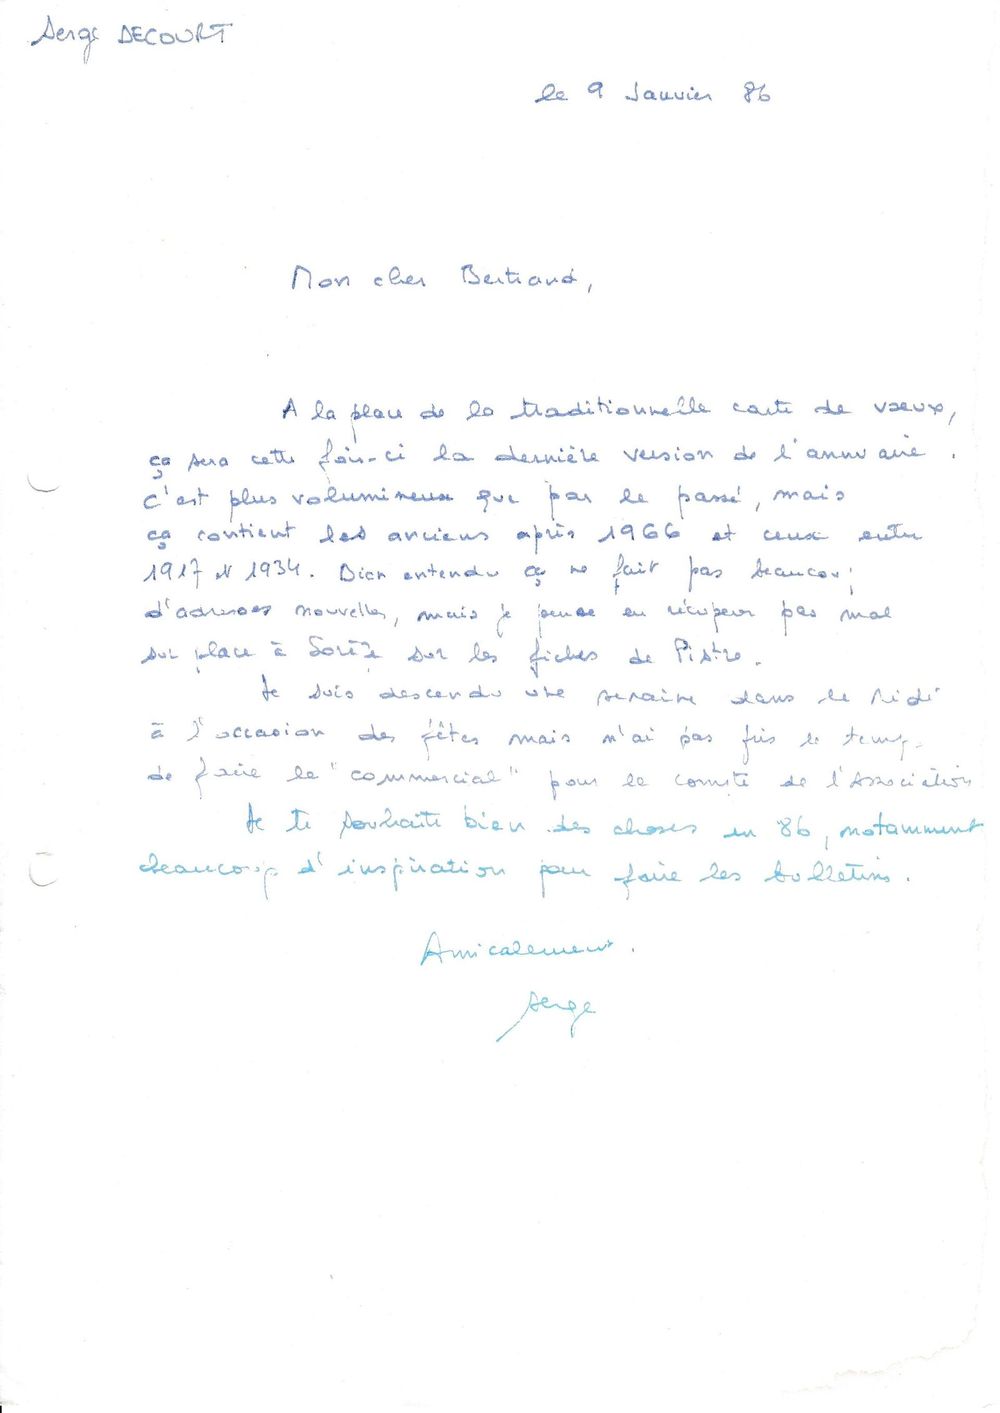 Serge DECOURT
le 9 Janvier 86
Mon cher Bertrand,
A la place de la traditionnelle carte de vœux,
ça sera cette fois-ci la dernière version de l'annuaire.
C'est plus volumineux que par le passé, mais
ça contient les anciens après 1966 et ceux entre
1917 et 1934. Bien entendu ça ne fait pas beaucoup
d'adresses nouvelles, mais je pense en récupérer pas mal
sur place à Sorèze sur les fiches de Pistre.
Je suis descendu une semaine dans le Midi
à l'occasion des fêtes mais n'ai pas pris le temps
de faire le "commercial" pour le compte de l'Association
Je te souhaite bien des choses en 86, notamment
beaucoup d'inspiration pour faire les bulletins.
Amicalement.
Serge